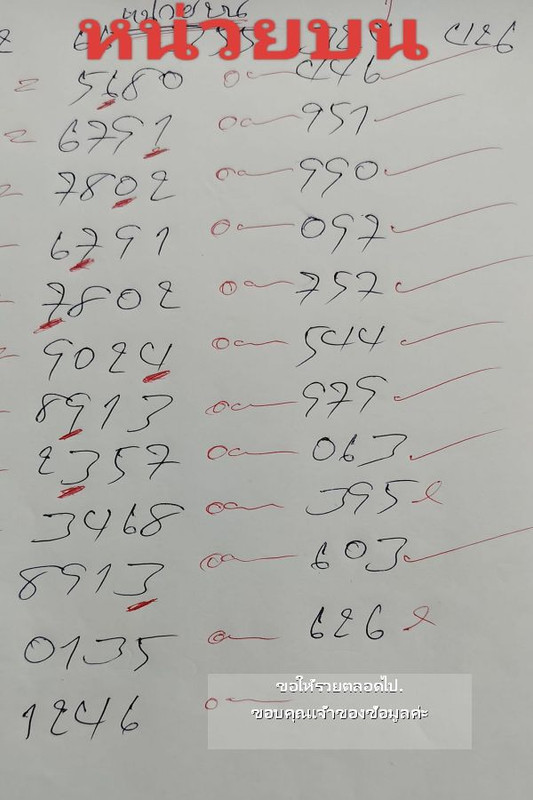 หน่วยบน
426
5680 446
6791 951
7802 990
6791 097
7802 757
9024 544
8913 979
2357 063
3468 395
8913 603
0135 626
1246
ขอให้รวยตลอดไป.
ขอบคุณเจ้าของข้อมูลค่ะ